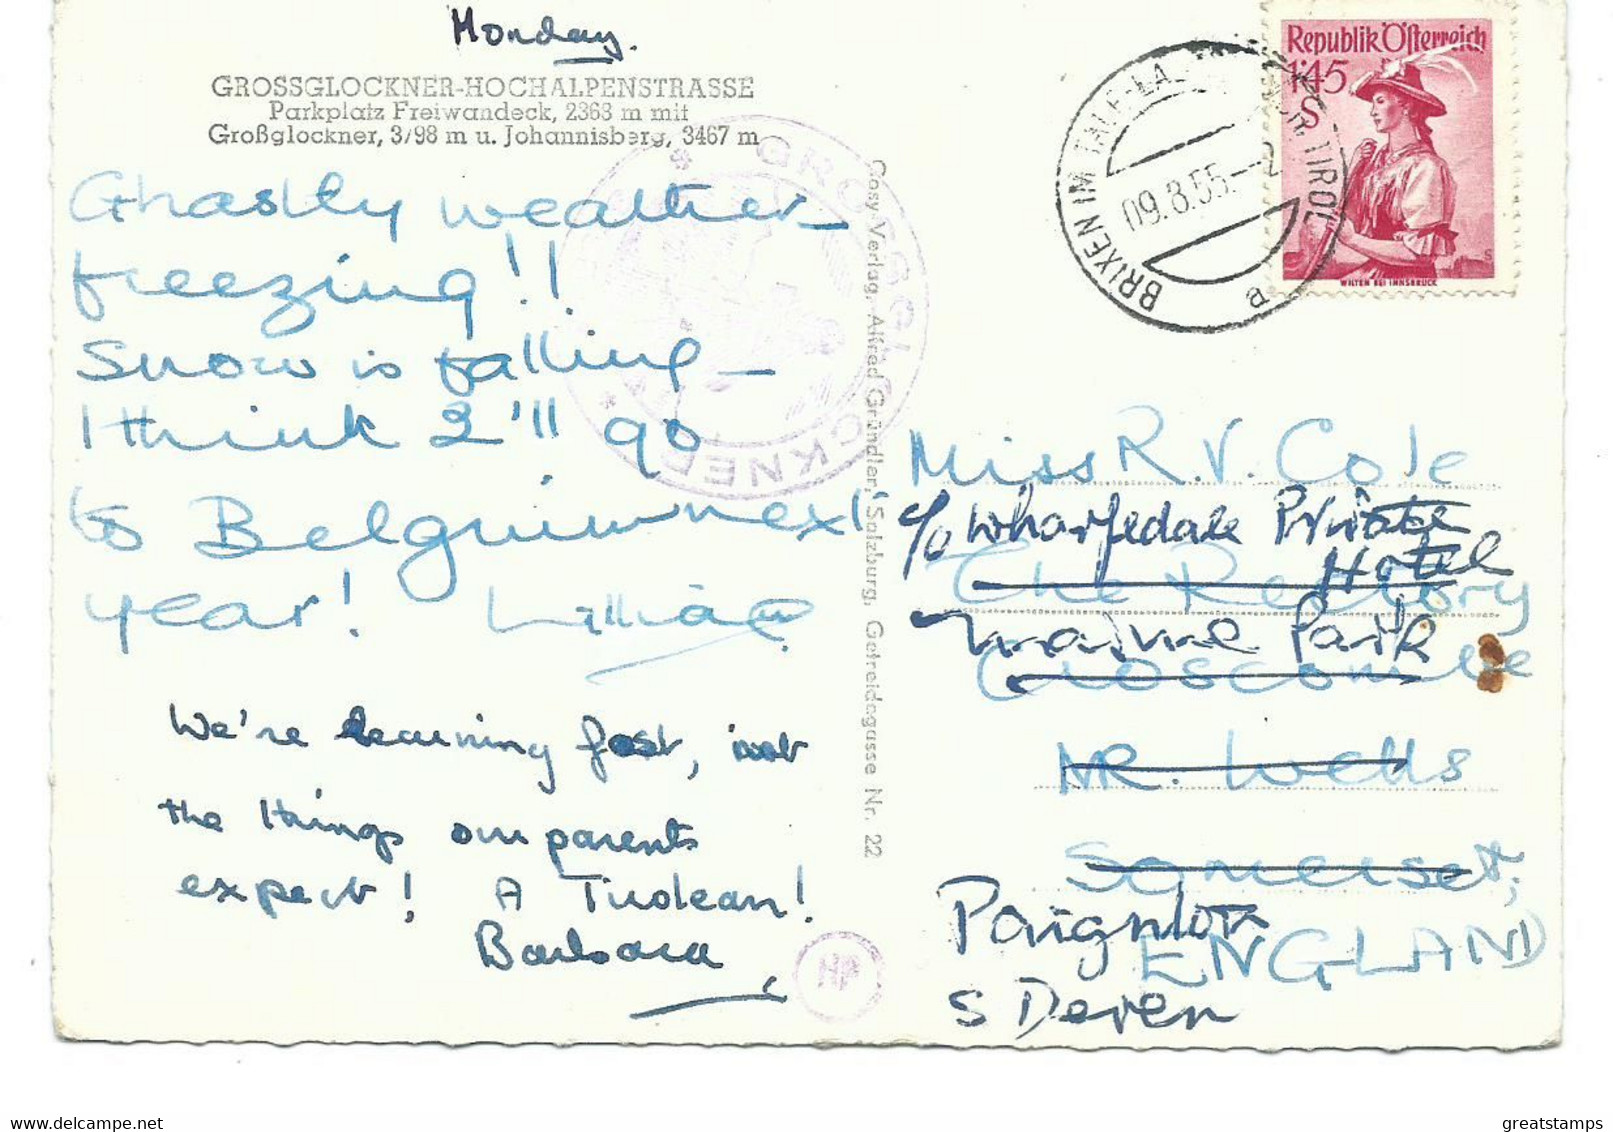 Monday.
GROSSGLOCKNER-HOCHALPENSTRASSE
Parkplatz Freiwandeck, 2368 m mit
Großglockner, 3798 m u. Johannisberg, 3467 m
Ghastly weather –
freezing!!
Snow is falling –
I think I'll go
to Belgium next
year! Lillian
We're learning fast, not
the things our parents
expect! A Tirolean!
Barbara
GROSSGLOCKNER
Cosy-Verlag, Alfred Gründler, Salzburg, Getreidegasse Nr. 22
HP
Republik Österreich
1'45
S
WILTEN BEI INNSBRUCK
BRIXEN IM TALE TIROL
09.8.55.
a
Miss R. V. Cole
c/o Wharfedale Private
Hotel
The Rectory
Park
Croscombe
NR. Wells
Somerset,
Paignton
ENGLAND
S Deven
greatstamps